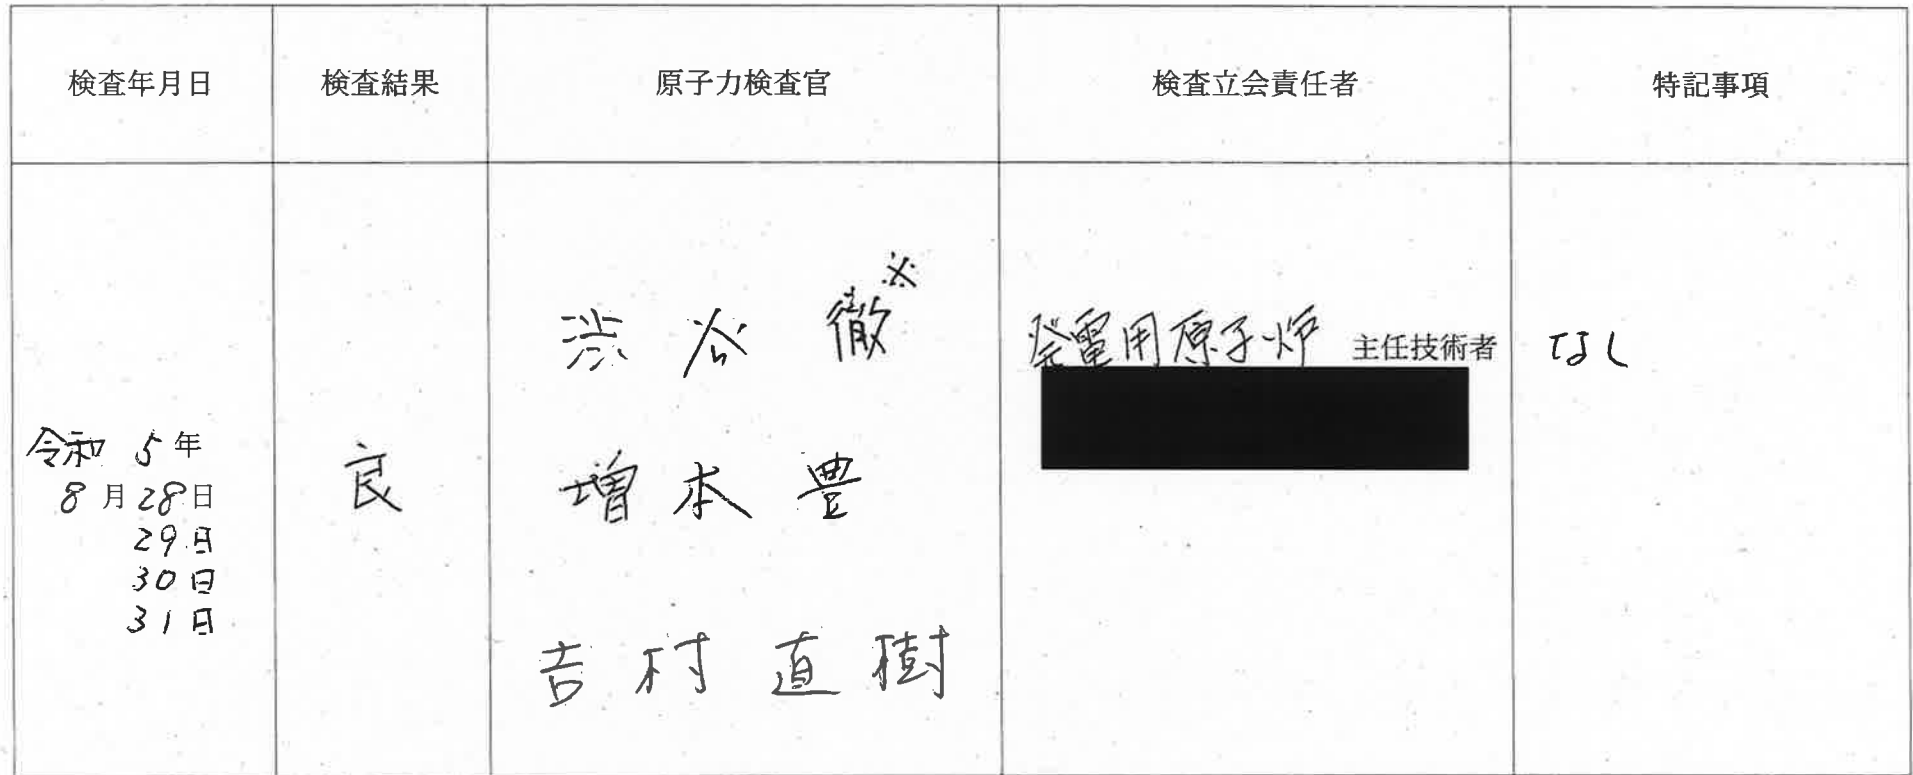 検査年月日 検査結果 原子力検査官 検査立会責任者 特記事項
令和 5年
8月28日
29日
30日
31日
良
渋谷 徹※
増本 豊
吉村 直樹
発電用原子炉 主任技術者
なし